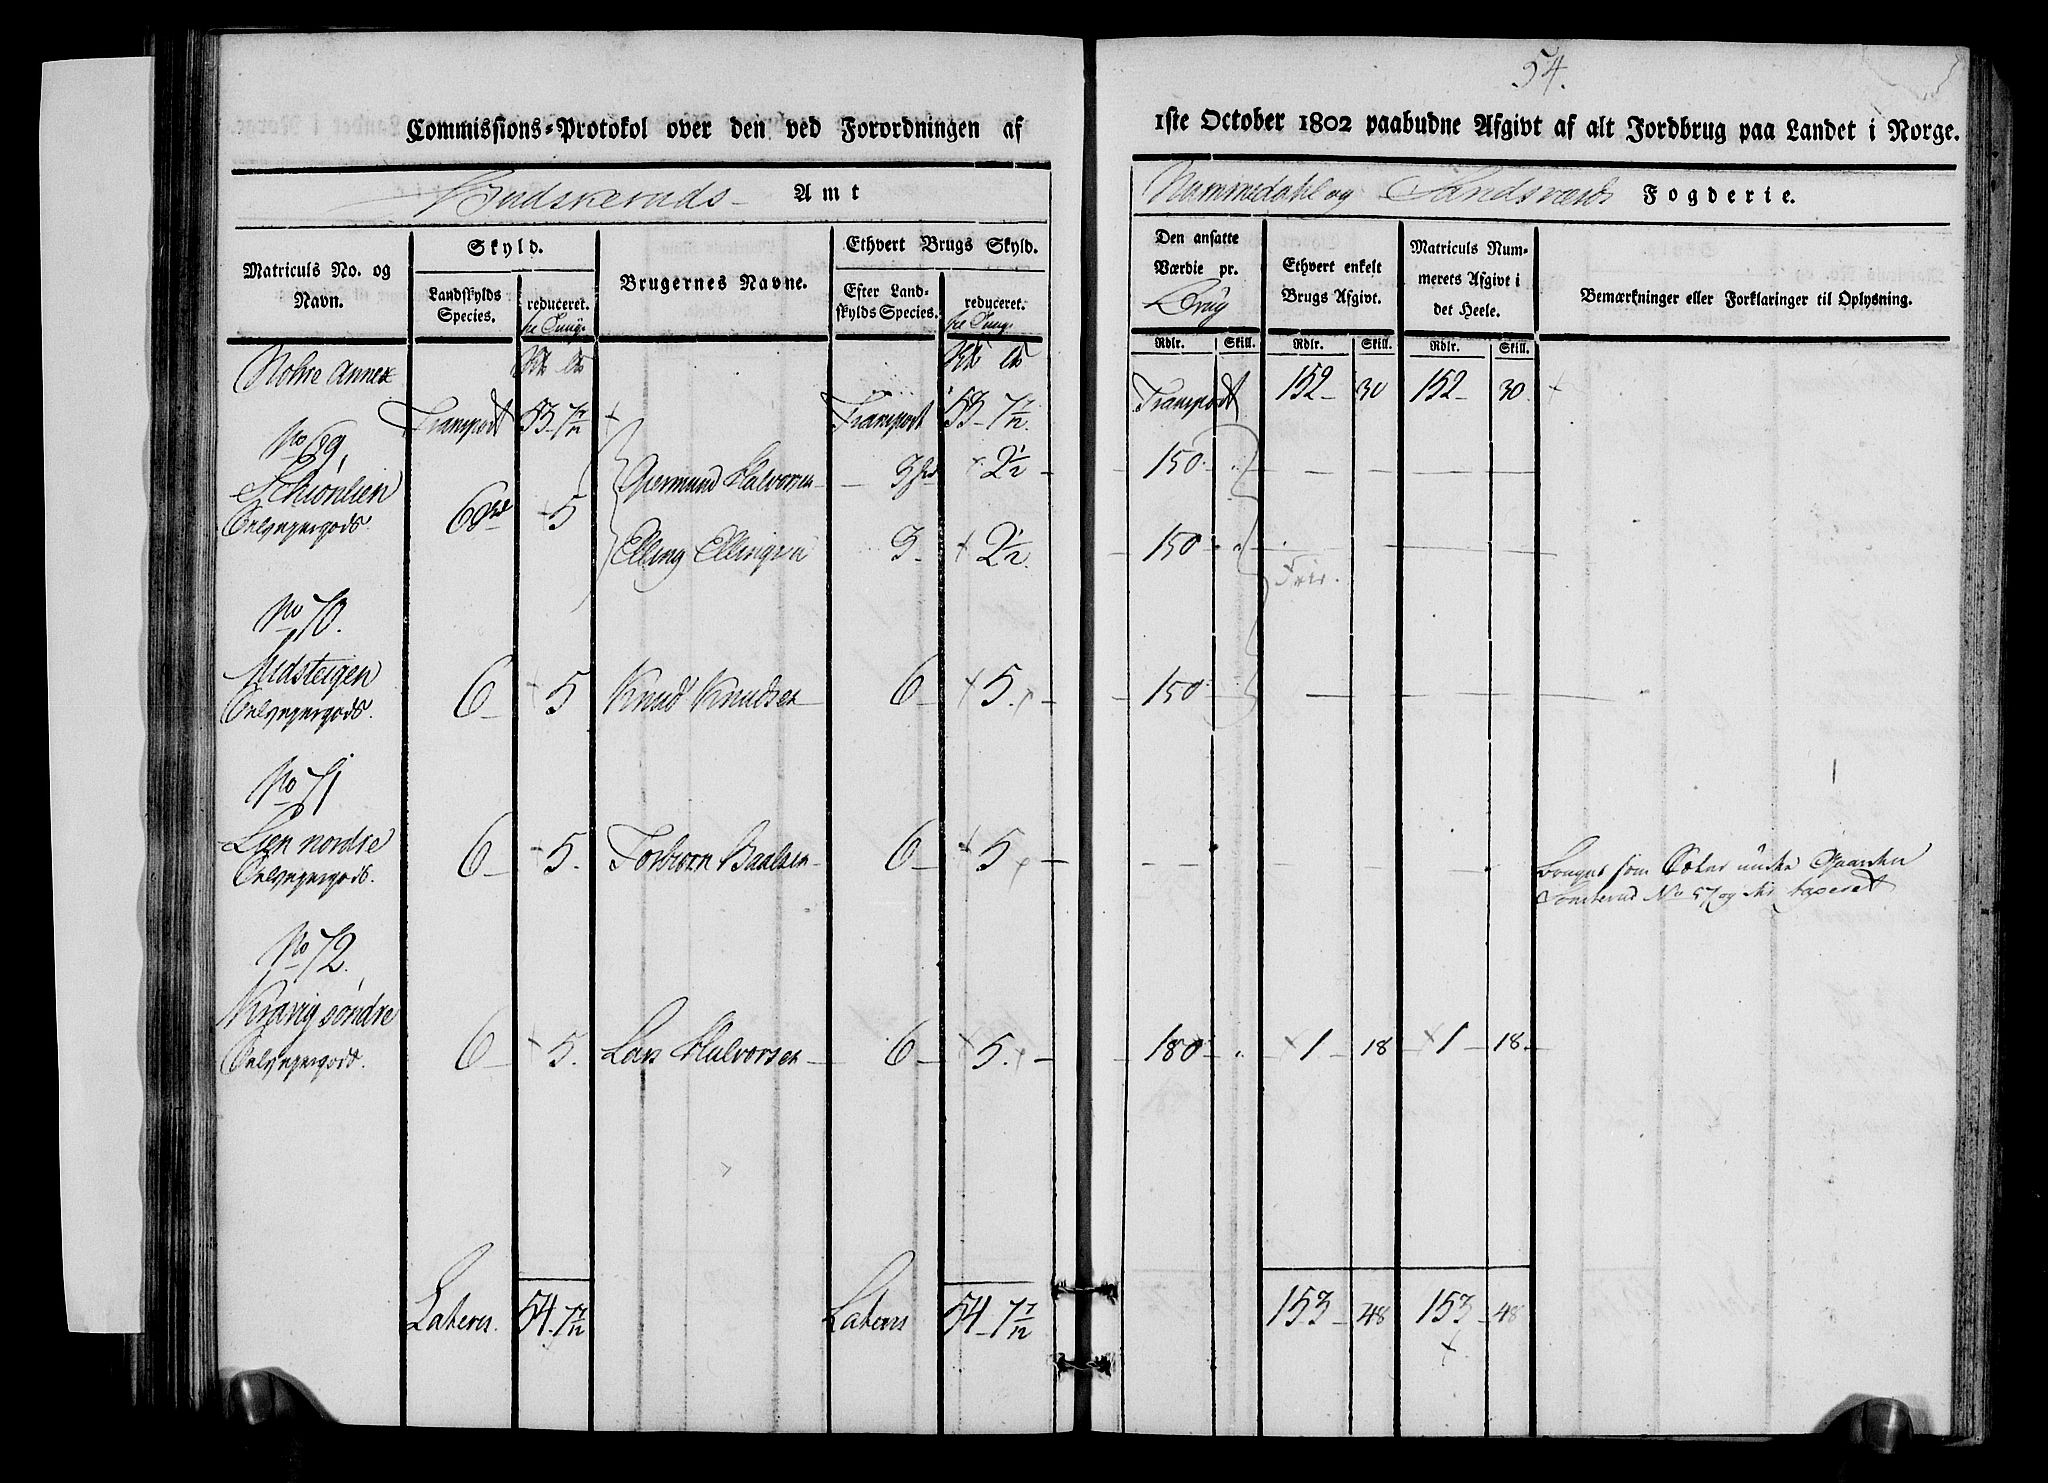 54.
Commissions-Protokol over den ved Forordningen af 1ste October 1802 paabudne Afgivt af alt Jordbrug paa Landet i Norge.
Budskeruds Amt
Nummedahl og Sandsværds Fogderie.
Matriculs No. og Navn.
Skyld.
Landskylds Species.
reduceret.
Brugernes Navne.
Ethvert Brugs Skyld.
Efter Landskylds Species.
reduceret.
Den ansatte Værdie pr. Brug
Ethvert enkelt Brugs Afgivt.
Matriculs Nummerets Afgivt i det Heele.
Bemærkninger eller Forklaringer til Oplysning.
Rdlr. Skill. Rdlr. Skill. Rdlr. Skill.
Annex
Transport 53-7 7/12 Transport 53-7 7/12 Transport 152 30 152 30
No 69,
Schiönlien 6 5 Halvorsen 3 2 1/2 150
Selveyergods. Elling Ellingsen 3 2 1/2 150
Frie.
No 70.
Midsteigen 6 5 Knud Knudsen 6 5 150
Selveyergods.
No 71
Lien nordre 6 5 Torbiørn 6 5
Selveyergods. Bruges som Sæter under Gaarden
No 57 og
taxeret
No 72.
Kravig søndre 6 5 Lars Halvorsen 6 5 180 1 18 1 18
Selveyergods.
Lateris 54-7 7/12 Lateris 54-7 7/12 153 48 153 48